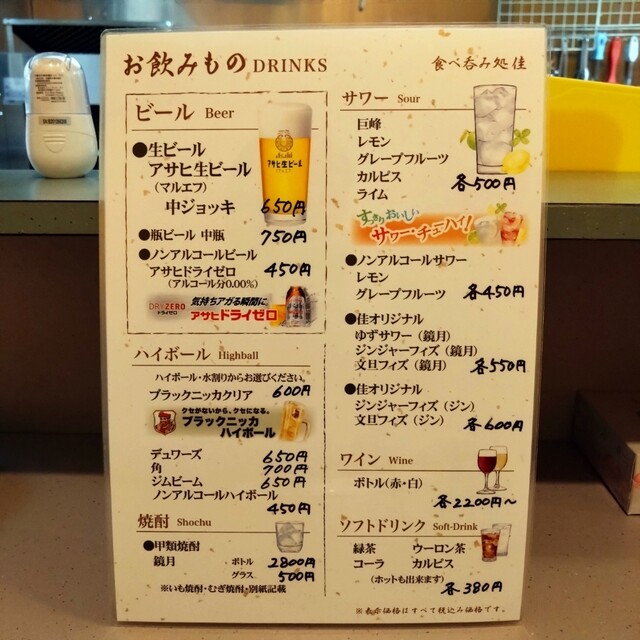 お飲みもの DRINKS
食べ呑み処 佳
ビール Beer
●生ビール
アサヒ生ビール
(マルエフ)
中ジョッキ 650円
●瓶ビール 中瓶 750円
●ノンアルコールビール
アサヒドライゼロ 450円
(アルコール分0.00%)
Asahi
アサヒ生ビール
DRY ZERO
ドライゼロ
気持ちアガる瞬間に
アサヒドライゼロ
ハイボール Highball
ハイボール・水割りからお選びください。
ブラックニッカクリア 600円
クセがないから、クセになる。
ブラックニッカ
ハイボール
デュワーズ 650円
角 700円
ジムビーム 650円
ノンアルコールハイボール
450円
焼酎 Shochu
●甲類焼酎
鏡月 ボトル 2800円
グラス 500円
※いも焼酎・むぎ焼酎・別紙記載
サワー Sour
巨峰
レモン
グレープフルーツ
カルピス
ライム 各500円
すっきりおいしい
サワー・チューハイ!
●ノンアルコールサワー
レモン
グレープフルーツ 各450円
●佳オリジナル
ゆずサワー (鏡月)
ジンジャーフィズ (鏡月)
文旦フィズ (鏡月) 各550円
●佳オリジナル
ジンジャーフィズ (ジン)
文旦フィズ (ジン) 各600円
ワイン Wine
ボトル(赤・白)
各2200円～
ソフトドリンク Soft-Drink
緑茶 ウーロン茶
コーラ カルピス
(ホットも出来ます)
各380円
※表示価格はすべて税込み価格です。